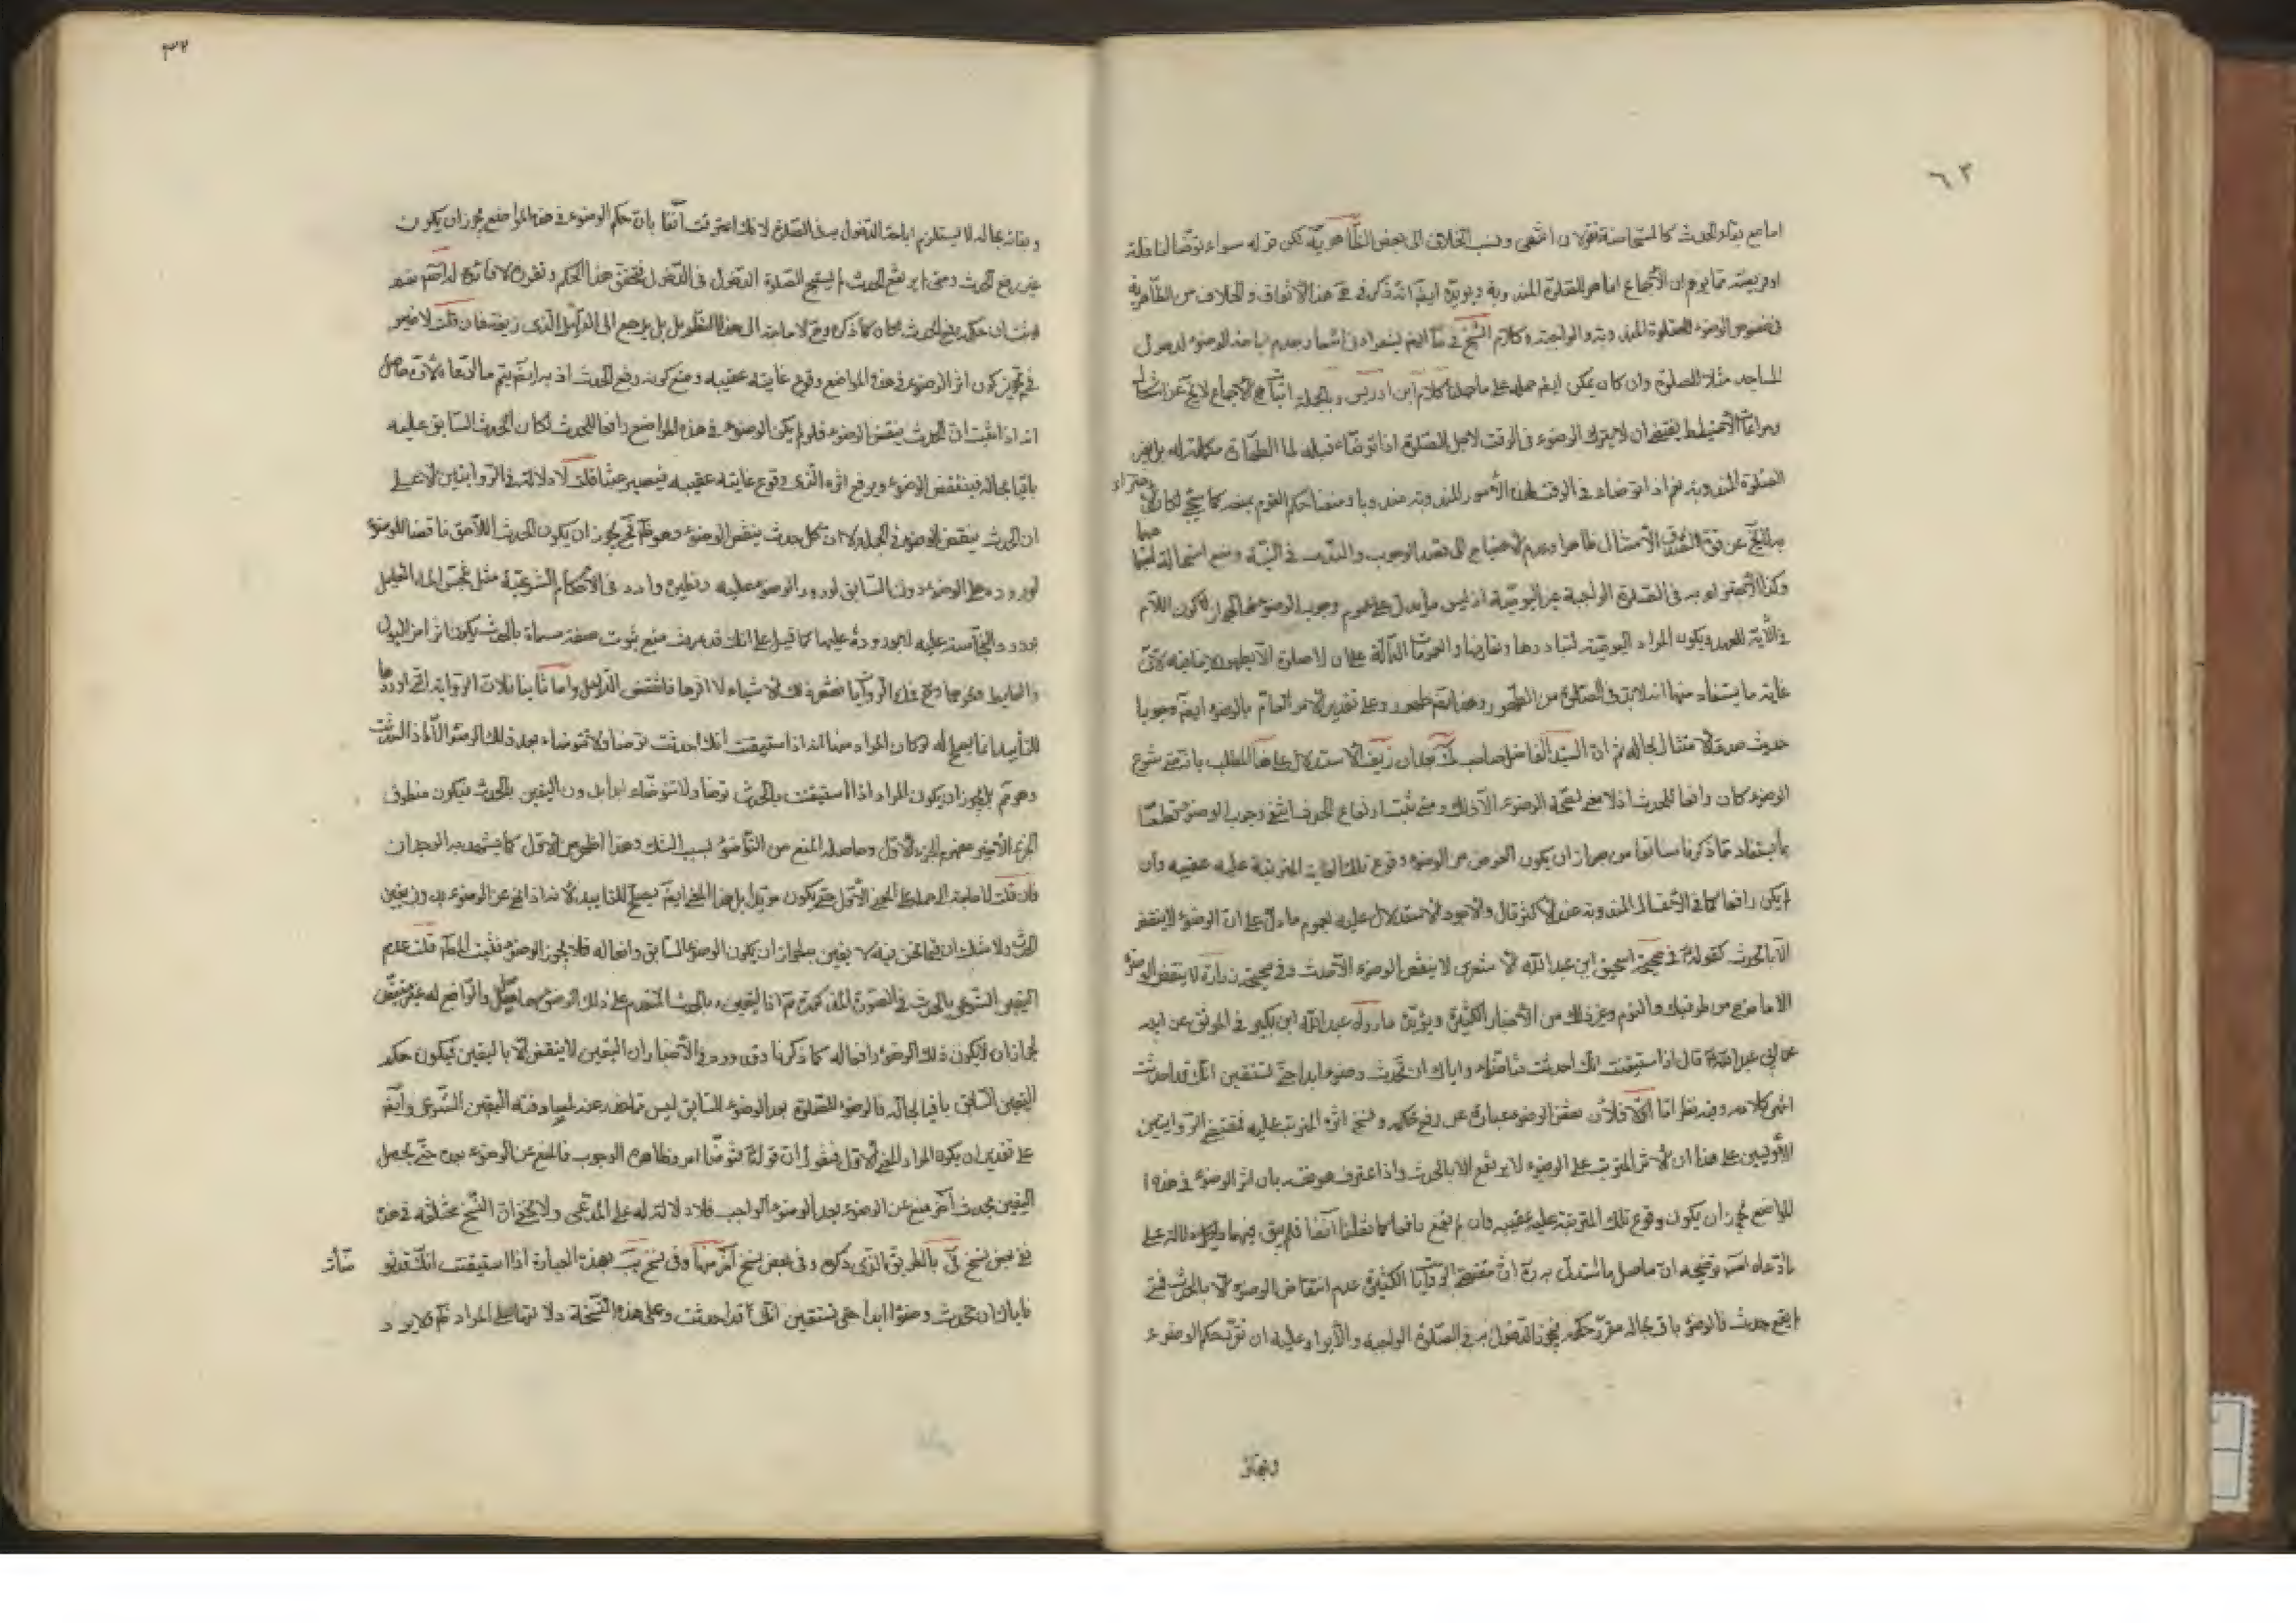 ٦٣
اما مع بقاء الحدث كالمستحاضة فقولان انتهى ونسب الخلاف الى بعض الظاهرية لكن قوله سواء توضأ لنافلة
او فريضة مما يوهم ان الاجماع انما هو للصلوة المندوبة ويؤيده ايضا انه ذكر في هذا الاتفاق والخلاف من الظاهرية
في خصوص الوضوء للصلوة المندوبة والواجبة وكلام الشيخ في ايضا اشعار بعدم اباحة الوضوء لدخول
المساجد مثلا للصلوة وان كان يمكن ايضا حمله على ما حملنا كلام ابن ادريس وبالجملة اثبات الاجماع لا يخ عن اشكال
ومراعاة الاحتياط يقتضي ان لا يترك الوضوء في الوقت لاجل الصلوة اذا توضاء قبله لما الطهارة مكملة له بل لغير
الصلوة المندوبة نعم اذا توضاء في الوقت لهذه الامور المندوبة مندوبا ومنعنا حكم القوم بمنعه كما سيجئ لكان الاجتزاء
به لا يخ عن قوة لصدق الامتثال ظاهرا وعدم الاحتياج الى قصد الوجوب والندب في النية ومنع استحالة اجتماعهما
وكذا الاجتزاء به في الصلوة الواجبة غير اليومية اذ ليس ما يدل على عموم وجوب الوضوء لها لجواز كون اللام
في الآية للعهد ويكون المراد اليومية لتبادرها وتعارفها والعمومات الدالة على ان لا صلوة الا بطهور لا ينافيه لان
غاية ما يستفاد منها انه لا بد في الصلوة من الطهور وهذا ايضا طهور وعلى تقدير الامر العام بالوضوء ايضا وجوبا
حديث صدق الامتثال بحاله ثم ان السيد الفاضل صاحب ك بعد ان زيف الاستدلال على هذا المطلب بانه متى شرع
الوضوء كان رافعا للحدث اذ لا معنى لصحة الوضوء الا ذلك ومتى ثبت ارتفاع الحدث انتفى وجوب الوضوء قطعا
بما يستفاد مما ذكرنا سابقا من جواز ان يكون الغرض من الوضوء وقوع تلك الغاية المترتبة عليه عقيبه وان
لم يكن رافعا كما في الاغسال المندوبة عند الاكثر قال والاجود الاستدلال عليه بعموم ما دل على ان الوضوء لا ينتقض
الا بالحدث كقوله ع في صحيحة اسحق ابن عبد الله الاشعري لا ينقض الوضوء الا حدث وفي صحيحة زرارة لا ينقض الوضوء
الا ما خرج من طرفيك والنوم وغير ذلك من الاخبار الكثيرة ويؤيده ما رواه عبد الله ابن بكير في الموثق عن ابيه
عن ابي عبد الله ع قال اذا استيقنت انك احدثت فتوضاء واياك ان تحدث وضوءا ابدا حتى تستيقن انك قد احدثت
انتهى كلامه وفيه نظر اما اولا فلان نقض الوضوء عبارة عن رفع حكمه وفسخ اثره المترتب عليه فمقتضى الروايتين
الاوليين على هذا ان الاثر المترتب على الوضوء لا يرتفع الا بالحدث واذا اعترف هو نفسه بان اثر الوضوء في هذه ا
لمواضع يجوز ان يكون وقوع تلك المترتبة عليه عقيبه وان لم يقع رافعا كما نقلنا آنفا فلم يبق فيهما دلالة على
ما ادعاه اصلا توضيحه ان حاصل ما استدل به ان مقتضى الروايات الكثيرة عدم انتقاض الوضوء الا بالحدث فمتى
لم يقع حدث فالوضوء باق بحاله مقرر حكمه فيجوز الدخول به في الصلوة الواجبة والايراد عليه ان تقرر حكم الوضوء
وبقائه
٣٢
وبقائه بحاله لا يستلزم اباحة الدخول به في الصلوة لانك اعترفت آنفا بان حكم الوضوء في هذه المواضع يجوز ان يكون
غير رفع الحدث ومتى لم يرتفع الحدث لم يستبح الصلوة الدخول في الدخول فتحقق هذا الحكم وتقرره لا فائدة له اصلا نعم
لو ثبت ان حكمه رفع الحدث لكان كما ذكره ومع لا حاجة الى هذا التطويل بل يرجع الى الدليل الذي زيفته فان قلت لا ضير
في تجويز كون اثر الوضوء في هذه المواضع وقوع غايته عقيبه ومنع كونه رفع الحدث اذ به ايضا يتم ما ادعاه لان حاصل
انه اذا ثبت ان الحدث ينقض الوضوء فلو لم يكن الوضوء في هذه المواضع رافعا للحدث لكان الحدث السابق عليه
باقيا بحاله فينتقض الوضوء ويرفع اثره الذي وقوع غايته عقيبه فيصير عبثا قلت لا دلالة في الروايتين الا على
ان الحدث ينقض الوضوء في الجملة لا ان كل حدث ينقض الوضوء وهو ظ فح يجوز ان يكون الحدث اللاحق ناقضا للوضوء
لوروده على الوضوء دون السابق لورود الوضوء عليه ونظيره وارد في الاحكام الشرعية مثل نجس الماء القليل
بورود النجاسة عليه لا بوروده عليها كما قيل على انك قد عرفت منع ثبوت صفة مسماة بالحدث يكون اثرا من البول
والغايط ونحوهما ومع في الروايات نقض تلك الاشياء لا اثرها فانتقض الدليل واما ثانيا فلان الرواية التي اوردها
للتأييد انما يصح له لو كان المراد منها انه اذا استيقنت انك احدثت توضأ ولا تتوضاء بعد ذلك الوضوء الا اذا احدثت
وهو ثم بل يجوز ان يكون المراد اذا استيقنت بالحدث توضأ ولا تتوضاء ابدا بدون اليقين بالحدث فيكون منطوق
الجزء الاخير مفهوم الجزء الاول وحاصله المنع من التوضؤ بسبب الشك وهذا اظهر من الاول كما يشهد به الوجدان
فان قلت لا حاجة الى حمله على الجزء الاول حتى يكون مؤيدا بل هذا المعنى ايضا يصلح للتأييد لانه اذا نهي عن الوضوء بدون يقين
الحدث ولا شك ان فيما نحن فيه لا يقين بعد لجواز ان يكون الوضوء السابق رافعا له فلا يجوز الوضوء فثبت المط قلت عدم
اليقين الشرعي بالحدث في الصورة المذكورة ثم اذا اليقين بالحدث المتقدم على ذلك الوضوء حاصل والرافع له غير متيقن
لجواز ان لا يكون ذلك الوضوء رافعا له كما ذكرنا وقد ورد في الاخبار ان اليقين لا ينقض الا باليقين فيكون حكم
اليقين السابق باقيا بحاله فالوضوء للصلوة بعد الوضوء السابق ليس مما نهي عنه لمصادفته اليقين الشرعي وايضا
على تقدير ان يكون المراد المعنى الاول فنقول ان قوله ع فتوضأ امر وظاهره الوجوب فالمنع عن الوضوء بعده حتى يحصل
اليقين بحدث آخر منع عن الوضوء بعد الوضوء الواجب فلا دلالة له على المدعى ولا يخفى ان النسخ مختلفة في هذه
ففي بعض نسخ في بالطريق الذي ذكره وفي بعض نسخ آخر منها وفي نسخ يب بهذه العبارة اذا استيقنت انك قد تو
ضأت
فاياك ان تحدث وضوءا ابدا حتى تستيقن انك قد احدثت وعلى هذه النسخة دلالتها على المراد ثم فلا يرد